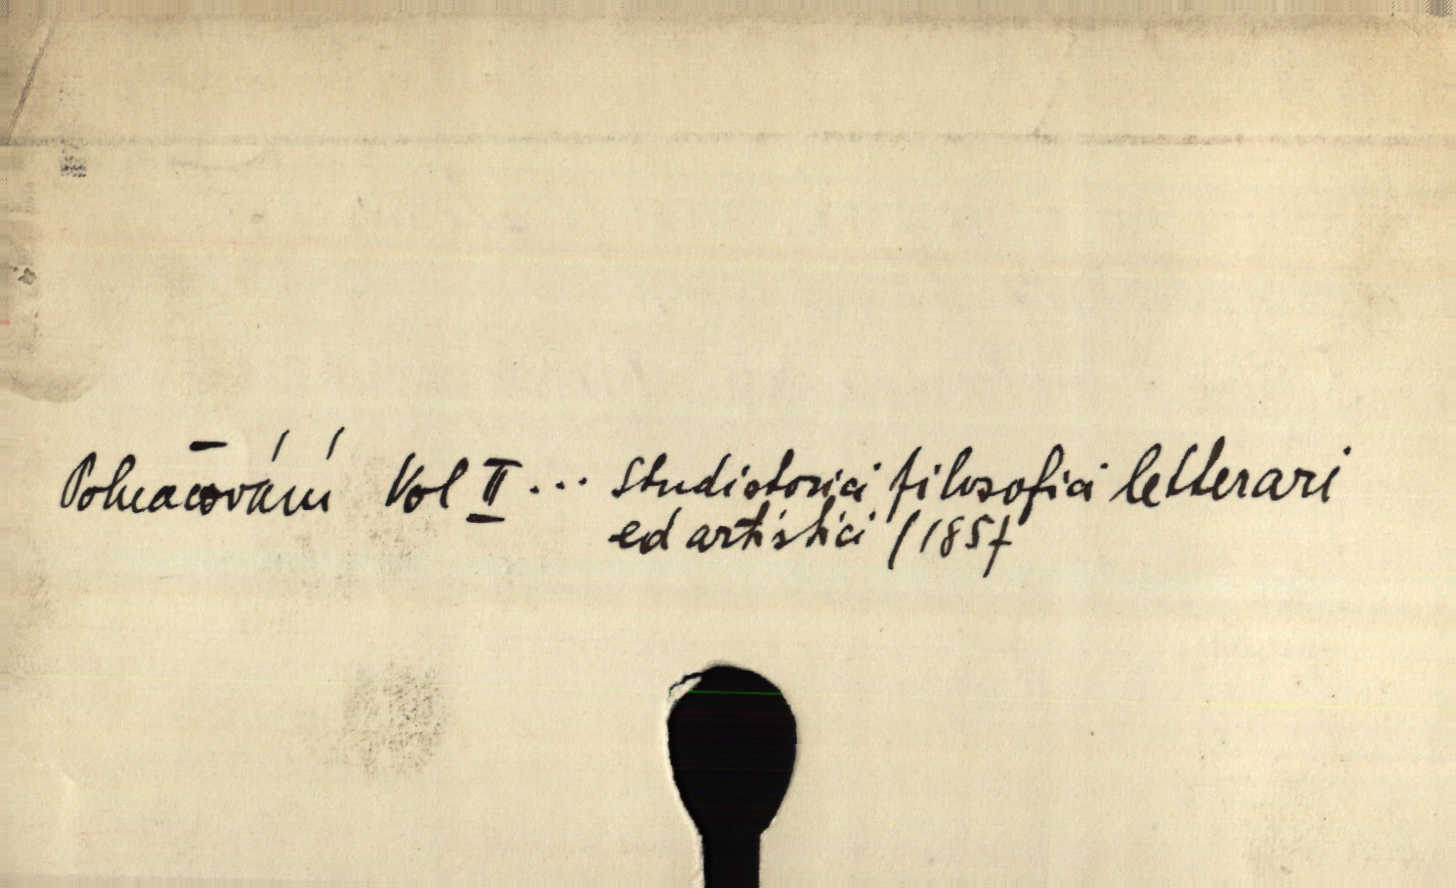 Pokračování Vol II... studi storici filosofici letterari
ed artistici (1857